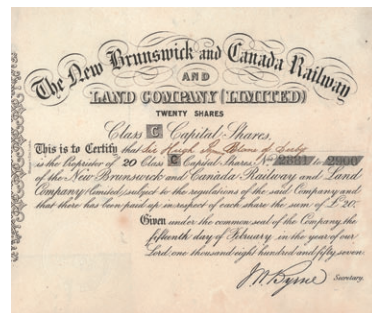 The New Brunswick and Canada Railway
AND
LAND COMPANY (LIMITED)
TWENTY SHARES
Class C Capital Shares,
This is to Certify that Sir Hugh
is the Proprietor of 20 Class C Capital Shares, No 2881 to 2900
of the New Brunswick and Canada Railway and Land
Company Limited, subject to the regulations of the said Company and
that there has been paid up in respect of each share the sum of £20.
Given under the common seal of the Company, the
fifteenth day of February in the year of our
Lord one thousand eight hundred and fifty seven.
J W Byrne Secretary.